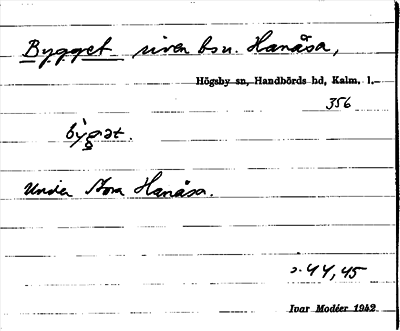 Bygget riven bsn. Hanåsa,
Högsby sn, Handbörds hd, Kalm. l.
356
Under Stora Hanåsa.
s. 44, 45
Ivar Modéer 1942